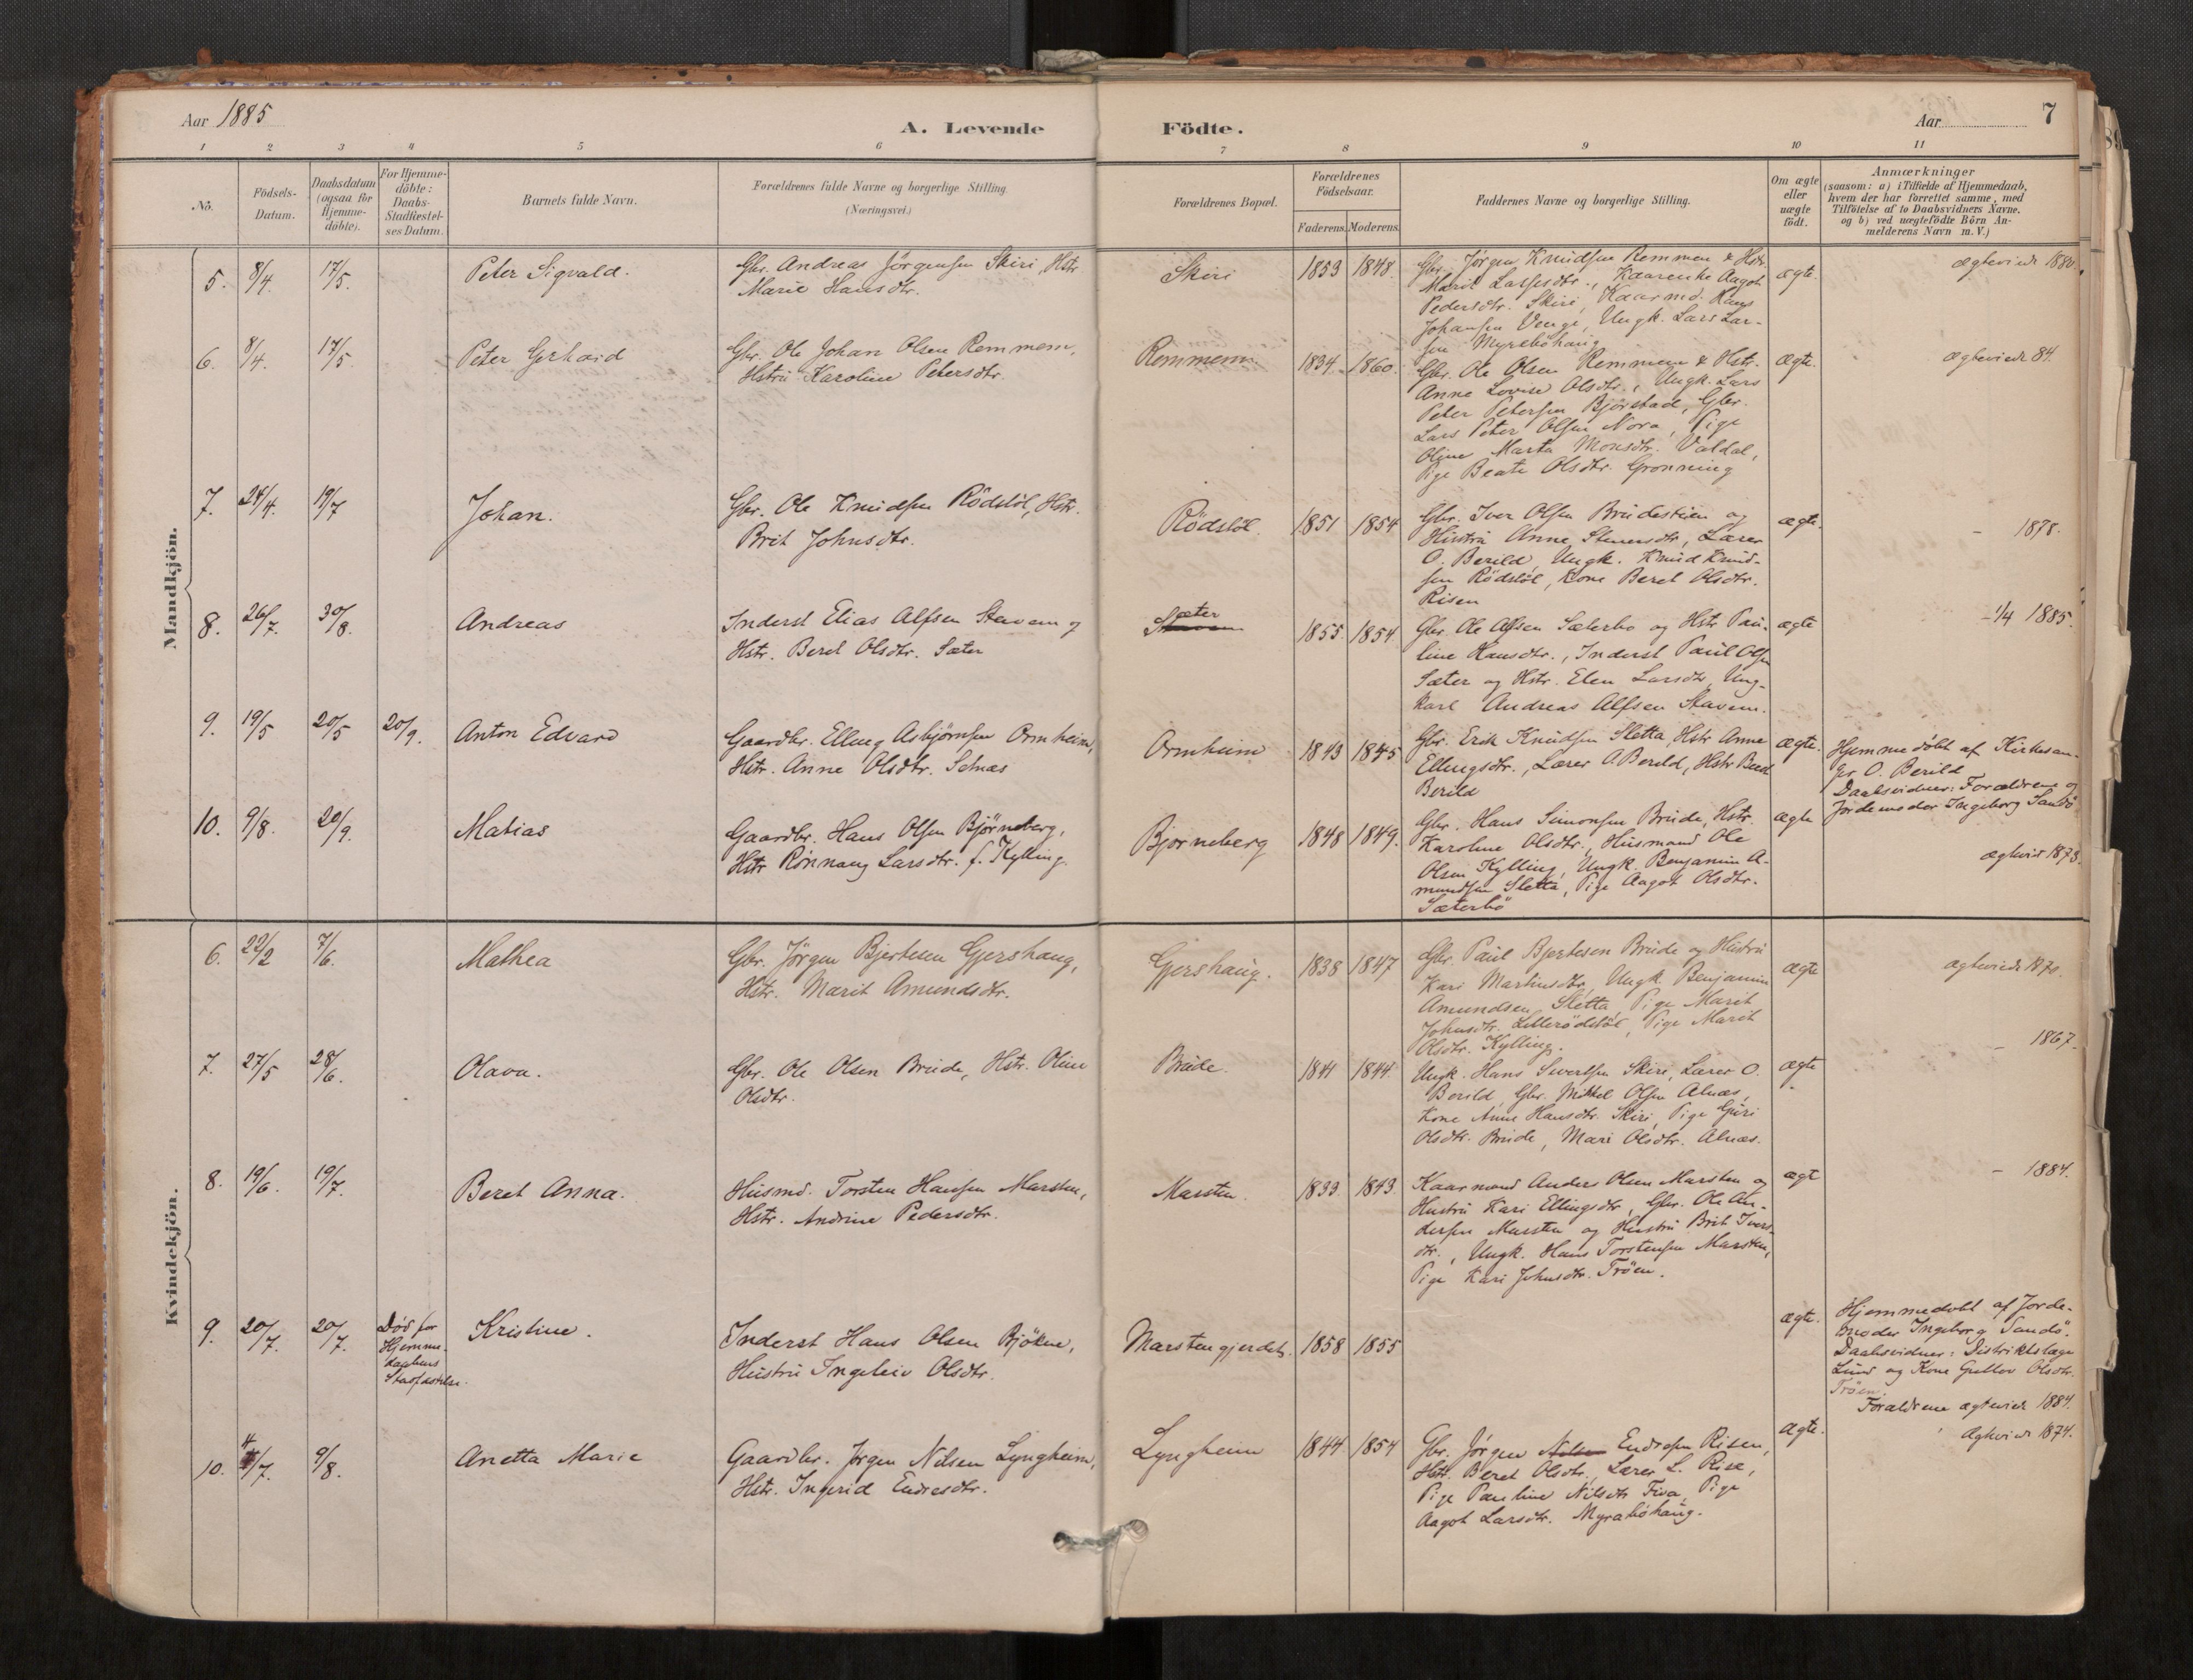 Aar 1885
A. Levende
Födte.
Aar
7
1
2
3
4
5
6
7
8
9
10
11
No.
Födsels-
Datum.
Daabsdatum
(ogsaa for
Hjemme-
döbte).
For Hjemme-
döbte:
Daabs-
Stadfæstel-
ses Datum.
Barnets fulde Navn.
Forældrenes fulde Navne og borgerlige Stilling
(Næringsvei.)
Forældrenes Bopæl.
Forældrenes
Födselsaar.
Faderens.
Moderens.
Faddernes Navne og borgerlige Stilling.
Om ægte
eller
uægte
födt.
Anmærkninger
(saasom: a) i Tilfælde af Hjemmedaab,
hvem der har forrettet samme, med
Tilföielse af to Daabsvidners Navne.
og b) ved uægtefödte Börn An-
melderens Navn m. V.)
Mandkjön.
5.
8/4.
17/5.
Peter Sigvald.
Gbr. Andreas Jörgensen Skiri, Hstr.
Marie Hansdtr.
Skiri
1853
1848.
Gbr. Jörgen Knudsen Remmem & Hstr.
Marit Lassesdtr., Kaarenke Aagot
Pedersdtr. Skiri, Kaarmd. Hans
Johansen Venge, Ungk. Lars Lar-
sen Myreböhaug
ægte.
ægteviede 1880.
6.
8/4.
17/5.
Peter Gerhard
Gbr. Ole Johan Olsen Remmem,
Hstru Karoline Petersdtr.
Remmem.
1834.
1860.
Gbr. Ole Olsen Remmem & Hstr.
Anne Lovise Olsdtr., Ungk. Lars
Peter Petersen Björstad, Gbr.
Lars Peter Olsen Nora, Pige
Oline Marta Monsdtr. Valdal,
Pige Beate Olsdtr. Grönning
ægte.
ægteviede 84.
7.
24/4.
19/7
Johan.
Gbr. Ole Knudsen Rödstöl, Hstr.
Brit Johnsdtr.
Rödstöl
1851
1854
Gbr. Iver Olsen Brudestuen og
Hustru Anne Steneresdtr, Lærer
O. Berild, Ungk. Knud Knud-
sen Rödstöl, Kone Beret Olsdtr.
Risen
ægte.
- 1878.
8.
26/7.
30/8.
Andreas
Inderst Elias Alfsen Stavem og
Hstr. Beret Olsdtr. Sæter
Sæter
1855.
1854.
Gbr. Ole Olsen Sæterbo og Hstr. Pau-
line Hansdtr., Inderst Paul Olsen
Sæter og Hstr. Elen Larsdtr, Ung-
karl Andreas Alfsen Stavem.
ægte
- 1/4 1885.
9.
19/5
20/5
20/9.
Anton Edvard
Gaardbr. Elling Asbjörnsen Ormheim,
Hstr. Anne Olsdtr. Setnæs
Ormheim
1843
1845
Gbr. Erik Knudsen Sletta, Hstr. Anne
Ellingsdtr., Lærer O. Berild, Hstr Beret
Berild
ægte.
Hjemmedöbt af Kirkesan-
ger O. Berild
Daabsvidner: Forældrene og
Jordemoder Ingeborg Sandö
10.
9/8.
20/9.
Matias
Gaardbr. Hans Olsen Björneberg,
Hstr Rönnaug Larsdtr. f. Kylling.
Bjorneberg
1848
1849.
Gbr. Hans Simonsen Brude, Hstr.
Karoline Olsdtr., Husmand Ole
Olsen Kylling, Ungk. Benjamin A-
mundsen Sletta, Pige Aagot Olsdtr.
Sæterbö
ægte
ægtevid 1873.
Kvindekjön.
6.
22/2
7/6.
Mathea
Gbr. Jörgen Bjertesen Gjershaug,
Hstr. Marit Amundsdtr.
Gjershaug.
1838
1847
Gbr. Paul Bjertesen Brude og Hustru
Kari Martinusdtr, Ungk. Benjamin
Amundsen Sletta, Pige Marit
Johnsdtr. Lillerödstöl, Pige Marit
Olsdtr. Kylling.
ægte
ægteviede 1870.
7.
27/5
28/6.
Olava.
Gbr. Ole Olsen Brude, Hstr. Oline
Olsdtr.
Brude.
1841
1844.
Ungk. Hans Sivertsen Skiri, Lærer O.
Berild, Gbr. Mikkel Olsen Alnæs,
Kone Anne Hansdtr. Skiri, Pige Guri
Olsdtr. Brude, Mari Olsdtr. Alnæs.
ægte
- 1867.
8.
19/6.
19/7.
Beret Anna.
Husmd. Torsten Hansen Marsten,
Hstr. Andrine Pedersdtr.
Marsten.
1833.
1843.
Kaarmand Anders Olsen Marsten og
Hustru Kari Ellingsdtr, Gbr. Ole An-
dersen Marsten og Hustru Brit Ivers-
dtr., Ungk. Hans Torstensen Marsten,
Pige Kari Johnsdtr. Tröen.
ægte
- 1884.
9.
20/7.
20/7.
Död for
Hjemme-
daabens
Stadfæstelse.
Kristine.
Inderst Hans Olsen Bjökne,
Hustru Ingeleiv Olsdtr.
Marstengjerdet.
1858
1855
ægte.
Hjemmedöbt af Jorde-
moder Ingeborg Sandö.
Daabsvidner: Distriktslæge
Lund og Kone Gullov Olsdtr.
Tröen.
Forældrene ægteviede 1884.
10.
4/7.
9/8.
Anetta Marie
Gaardbr. Jörgen Nilsen Lyngheim,
Hstr. Ingerid Endresdtr.
Lyngheim
1844.
1854
Gbr. Jörgen Nilsen Endresen Risen,
Hstr. Beret Olsdtr., Lærer L. Rise,
Pige Pauline Nilsdtr Fiva, Pige
Aagot Larsdtr. Myraböhaug.
ægte.
Ægteviede 1874.